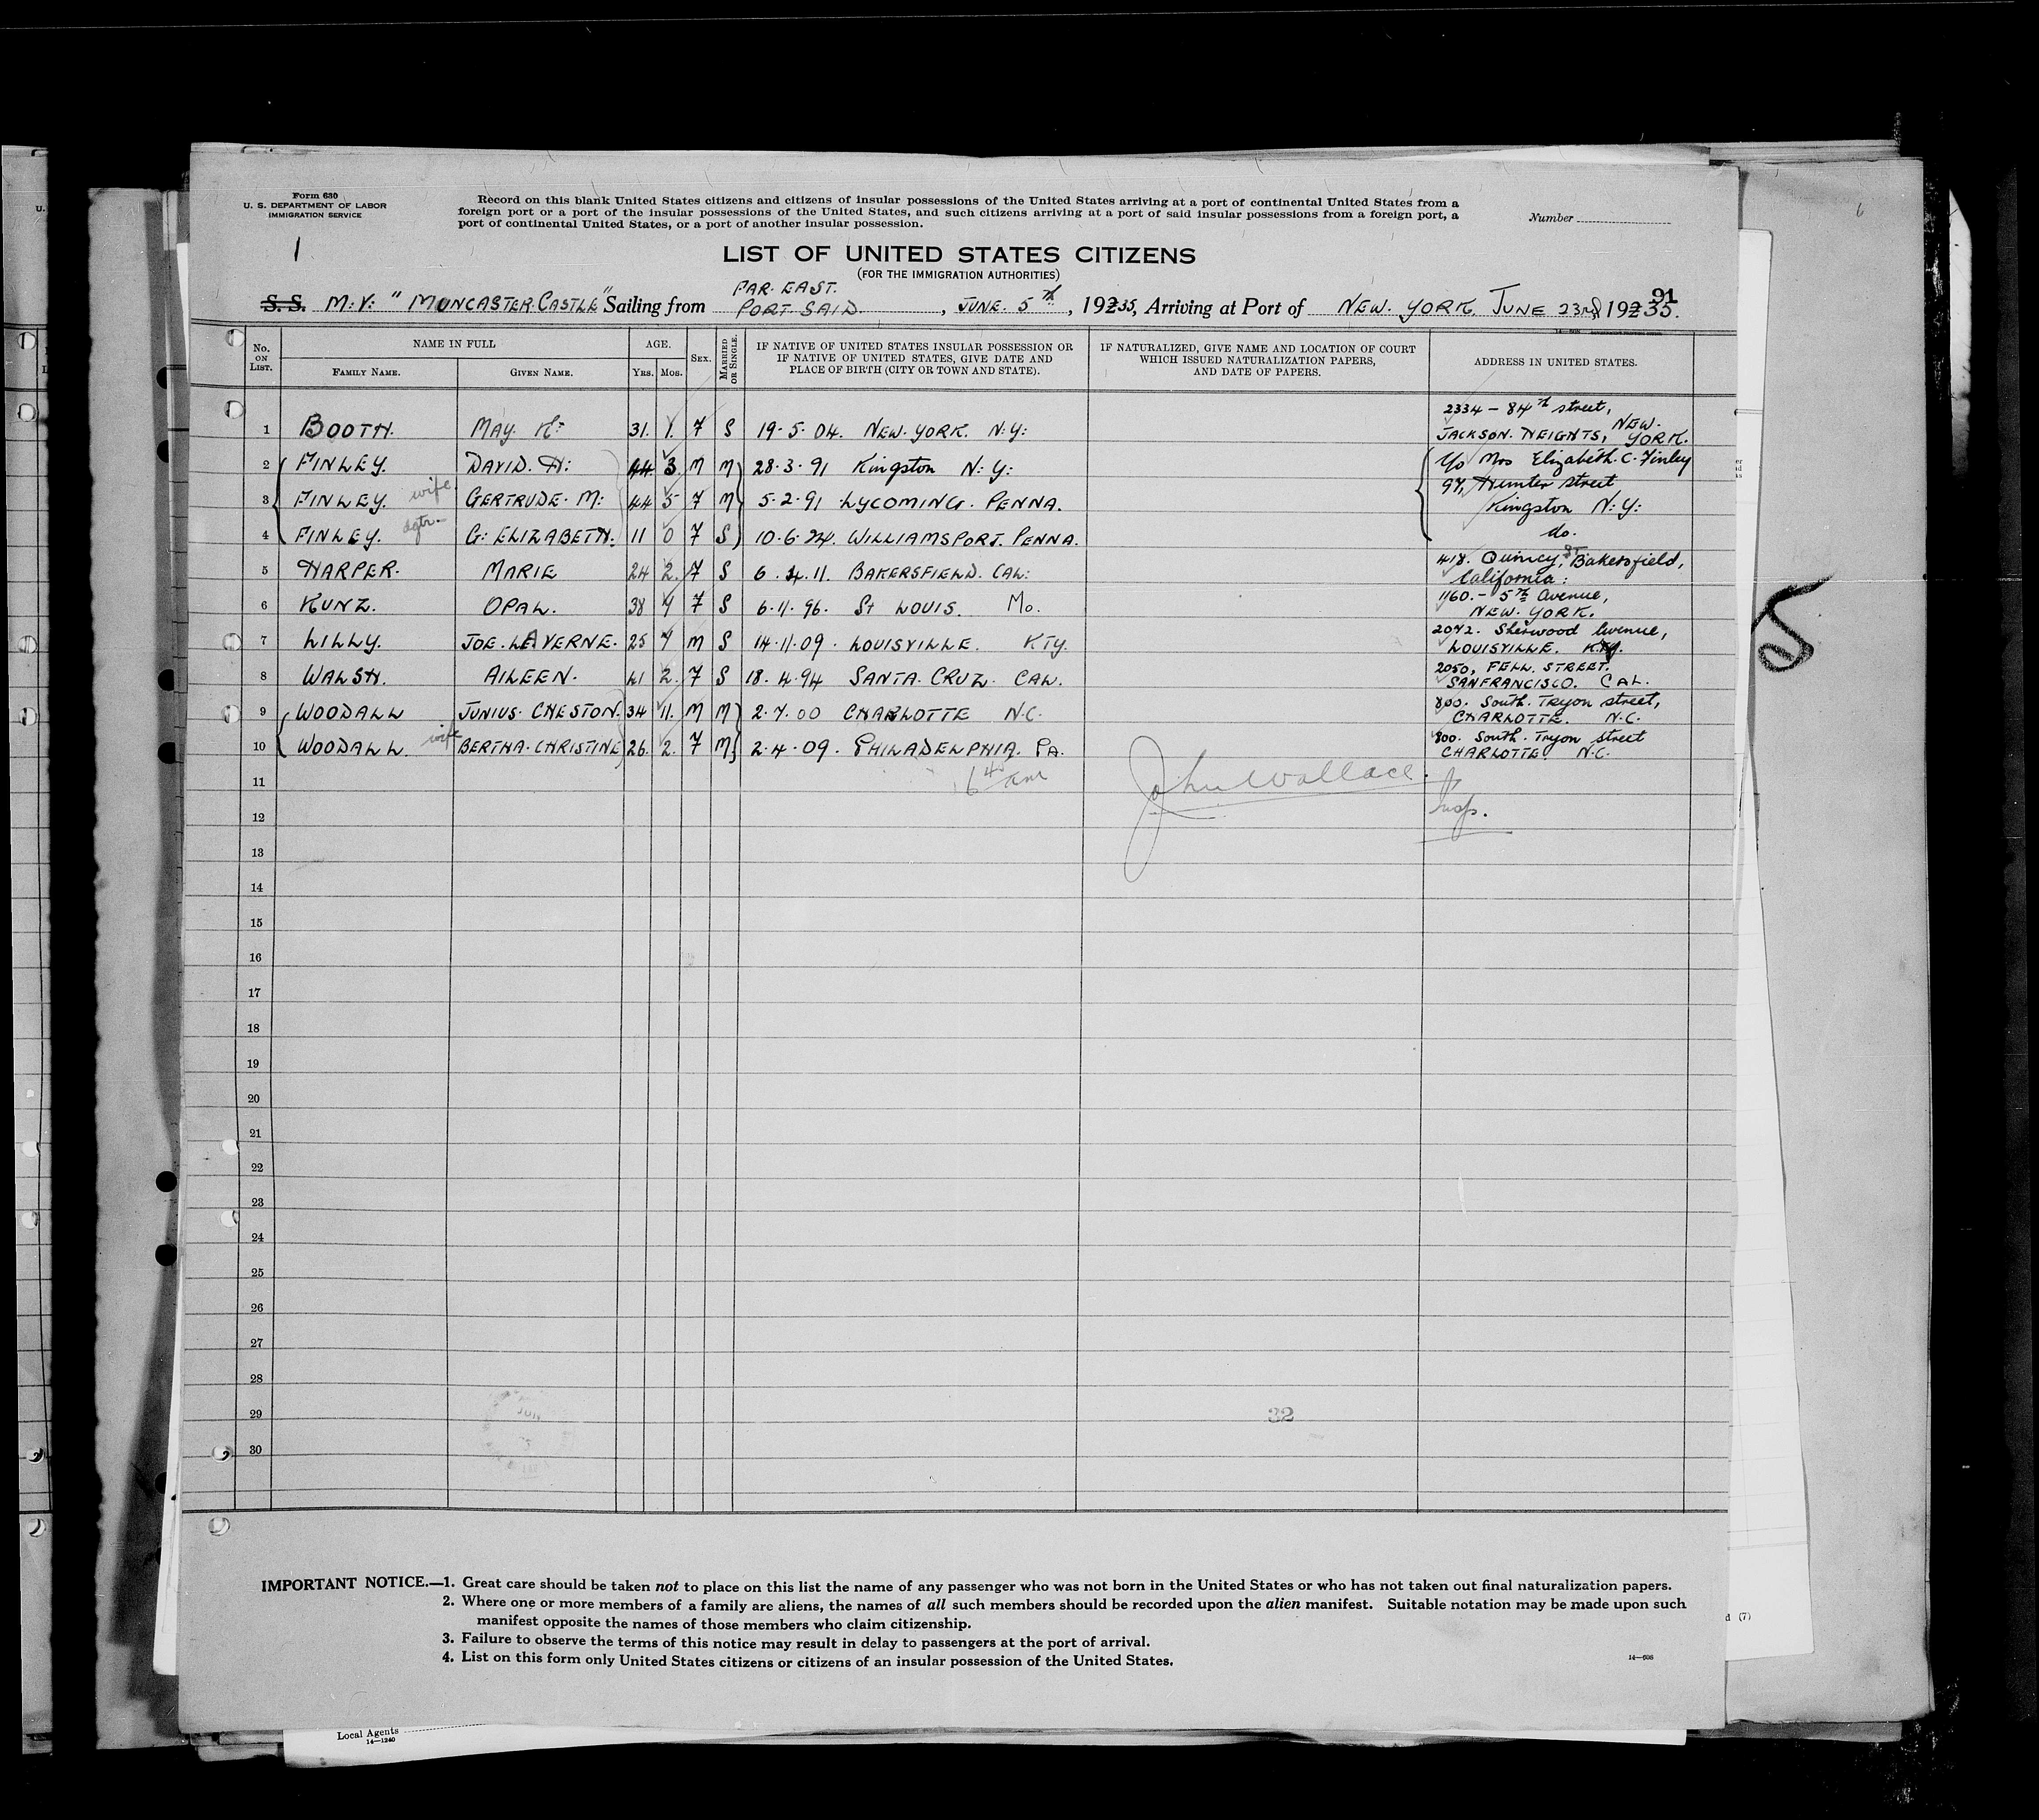 Form 630
U. S. DEPARTMENT OF LABOR
IMMIGRATION SERVICE
1
Record on this blank United States citizens and citizens of insular possessions of the United States arriving at a port of continental United States from a
foreign port or a port of the insular possessions of the United States, and such citizens arriving at a port of said insular possessions from a foreign port, a
port of continental United States, or a port of another insular possession.
Number
LIST OF UNITED STATES CITIZENS
(FOR THE IMMIGRATION AUTHORITIES)
FAR. EAST.
91
S. S. M.V. "MUNCASTER CASTLE" Sailing from PORT SAID, JUNE. 5th, 19235, Arriving at Port of NEW. YORK. JUNE 23rd 19235.
No. ON LIST.
NAME IN FULL
FAMILY NAME.
GIVEN NAME.
AGE.
YRS. MOS.
SEX.
MARRIED OR SINGLE.
IF NATIVE OF UNITED STATES INSULAR POSSESSION OR
IF NATIVE OF UNITED STATES, GIVE DATE AND
PLACE OF BIRTH (CITY OR TOWN AND STATE).
IF NATURALIZED, GIVE NAME AND LOCATION OF COURT
WHICH ISSUED NATURALIZATION PAPERS,
AND DATE OF PAPERS.
ADDRESS IN UNITED STATES.
1 BOOTH. MAY. K: 31. 1. F S 19.5.04. NEW. YORK. N.Y: 2334 - 84th street, JACKSON. HEIGHTS, NEW. YORK.
2 FINLEY. DAVID. H: 44 3. M M 28.3.91 Kingston N.Y: c/o Mrs Elizabeth. C. Finley
3 FINLEY. wife GERTRUDE. M: 44 5 F M 5.2.91 LYCOMING. PENNA. 97, Hunter street Kingston N.Y:
4 FINLEY. dgtr. G: ELIZABETH. 11 0 F S 10.6.24. WILLIAMSPORT. PENNA. do.
5 HARPER. MARIE 24 2. F S 6.4.11. BAKERSFIELD. CAL: 418. Quincy. St Bakersfield, California:
6 KUNZ. OPAL. 38 7 F S 6.11.96. St LOUIS. Mo. 1160. - 5th Avenue, NEW. YORK.
7 LILLY. JOE. LEAVERNE. 25 7 M S 14.11.09. LOUISVILLE. KTY. 2042. Sherwood Avenue, LOUISVILLE. KTY.
8 WALSH. AILEEN. 41 2. F S 18.4.94 SANTA. CRUZ. CAL. 2050, FELL. STREET. SANFRANCISCO. CAL.
9 WOODALL JUNIUS. CHESTON. 34 11. M M 2.7.00 CHARLOTTE N.C. 800. South. Tryon street, CHARLOTTE. N.C.
10 WOODALL. wife BERTHA. CHRISTINE 26. 2. F M 2.4.09. PHILADELPHIA. PA. 800. South. Tryon street CHARLOTTE. N.C.
6 45 am John Wallace.
Insp.
11
12
13
14
15
16
17
18
19
20
21
22
23
24
25
26
27
28
29
30
JUN
32
IMPORTANT NOTICE.—1. Great care should be taken not to place on this list the name of any passenger who was not born in the United States or who has not taken out final naturalization papers.
2. Where one or more members of a family are aliens, the names of all such members should be recorded upon the alien manifest. Suitable notation may be made upon such
manifest opposite the names of those members who claim citizenship.
3. Failure to observe the terms of this notice may result in delay to passengers at the port of arrival.
4. List on this form only United States citizens or citizens of an insular possession of the United States.
14—608
Local Agents
14—1240
(7)
5
6